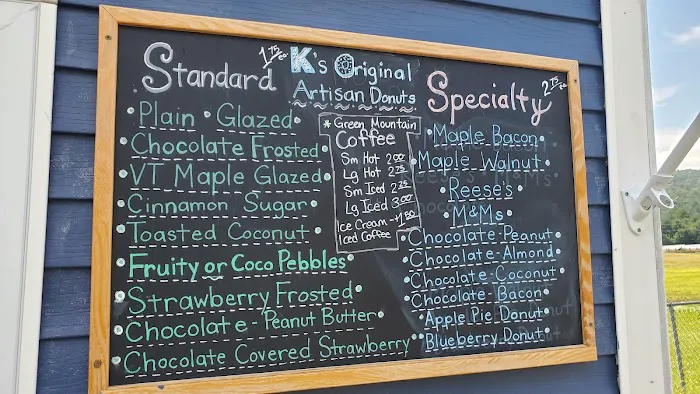 Standard 1.75 ea.
K's Original
Artisan Donuts
Specialty 2.75 ea.
Plain • Glazed
Chocolate Frosted
VT Maple Glazed
Cinnamon Sugar
Toasted Coconut
Fruity or Coco Pebbles
Strawberry Frosted
Chocolate-Peanut Butter
Chocolate Covered Strawberry
* Green Mountain
Coffee
Sm Hot 2.00
Lg Hot 2.75
Sm Iced 2.25
Lg Iced 3.00
Ice Cream +1.80
Iced Coffee
Maple Bacon
Maple Walnut
Reese's
M&Ms
Chocolate-Peanut
Chocolate-Almond
Chocolate-Coconut
Chocolate-Bacon
Apple Pie Donut
Blueberry Donut